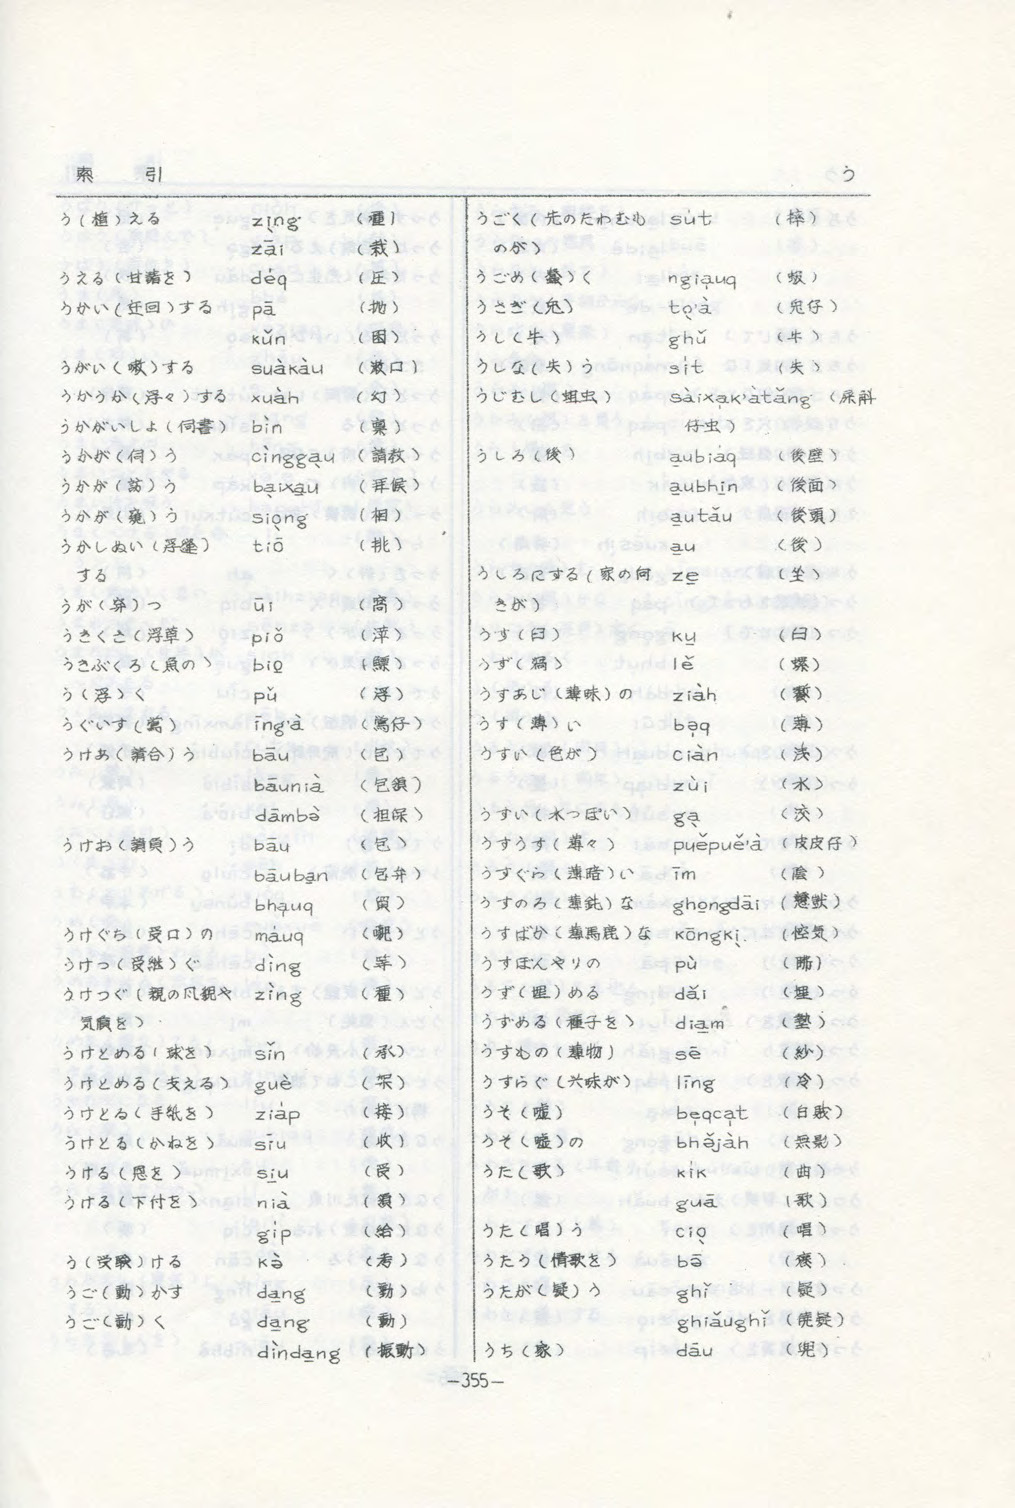 索 引 う
う(植)える zi̱ng (種)
zāi (栽)
うえる(甘藷を) déq (圧)
うかい(迂回)する pā (抛)
kǔn (囷)
うがい(嗽)する suàkàu (漱口)
うかうか(浮々)する xuàh (幻)
うかがいしよ(伺書) bìn (稟)
うかが(伺)う cìnggạu (請教)
うかが(訪)う bạixạu (拝候)
うかが(窺)う siọng (相)
うかしぬい(浮縫) tiō (挑)
する
うが(穿)つ ūi (䆀)
うきくさ(浮草) piǒ (萍)
うきぶくろ(魚の) bio̱ (鰾)
う(浮)く pǔ (浮)
うぐいす(鶯) īng'à (鶯仔)
うけあ(請合)う bāu (包)
bāunià (包領)
dāmbə̀ (担保)
うけお(請負)う bāu (包)
bāubạn (包弁)
bhạuq (貿)
うけぐち(受口)の màuq
うけつ(受継)ぐ dìng
うけつぐ(親の風貌や zìng (種)
気質を)
うけとめる(球を) sǐn (承)
うけとめる(支える) guè (架)
うけとる(手紙を) ziáp (接)
うけとる(かねを) sīu (收)
うける(恩を) si̱u (受)
うける(下付を) nià (領)
gíp (給)
う(受験)ける kə̀ (考)
うご(動)かす da̱ng (動)
うご(動)く da̱ng (動)
dìnda̱ng (振動)
うごく(先のたわむもの sút
のが)
うごめ(蠢)く ngiạuq
うさぎ(兎) tọ'à (兎仔)
うし(牛) ghǔ (牛)
うしな(失)う sít (失)
うじむし(蛆虫) sàixạk'àtǎng (屎斛
仔虫)
うしろ(後) a̱ubiáq (後壁)
a̱ubhi̱n (後面)
a̱utǎu (後頭)
a̱u (後)
うしろにする(家の何 ze̱ (坐)
きが)
うす(臼) ku̱ (臼)
うず(渦) lě (螺)
うすあじ(薄味)の ziàh
うす(薄)い bə̣q (薄)
うすい(色が) ciàn (浅)
zùi (水)
うすい(水っぽい) gạ
うすうす(薄々) puěpuě'à (皮皮仔)
うすぐら(薄暗)い īm (陰)
うすのろ(薄鈍)な gho̱ngdāi
うすばか(薄馬鹿)な kōngkị
うすぼんやりの pù
うず(埋)める dǎi (埋)
うずめる(種子を) dia̱m
うすもの(薄物) sē (紗)
うすらぐ(興味が) līng (冷)
うそ(嘘) bẹqcạt (白賊)
うそ(嘘)の bhə̌jàh (無影)
うた(歌) kík (曲)
guā (歌)
うた(唱)う ciọ (唱)
うたう(情歌を) bə̄ (褒)
うたが(疑)う ghǐ (疑)
ghiǎughǐ
うち(家) dāu (兜)
—355—